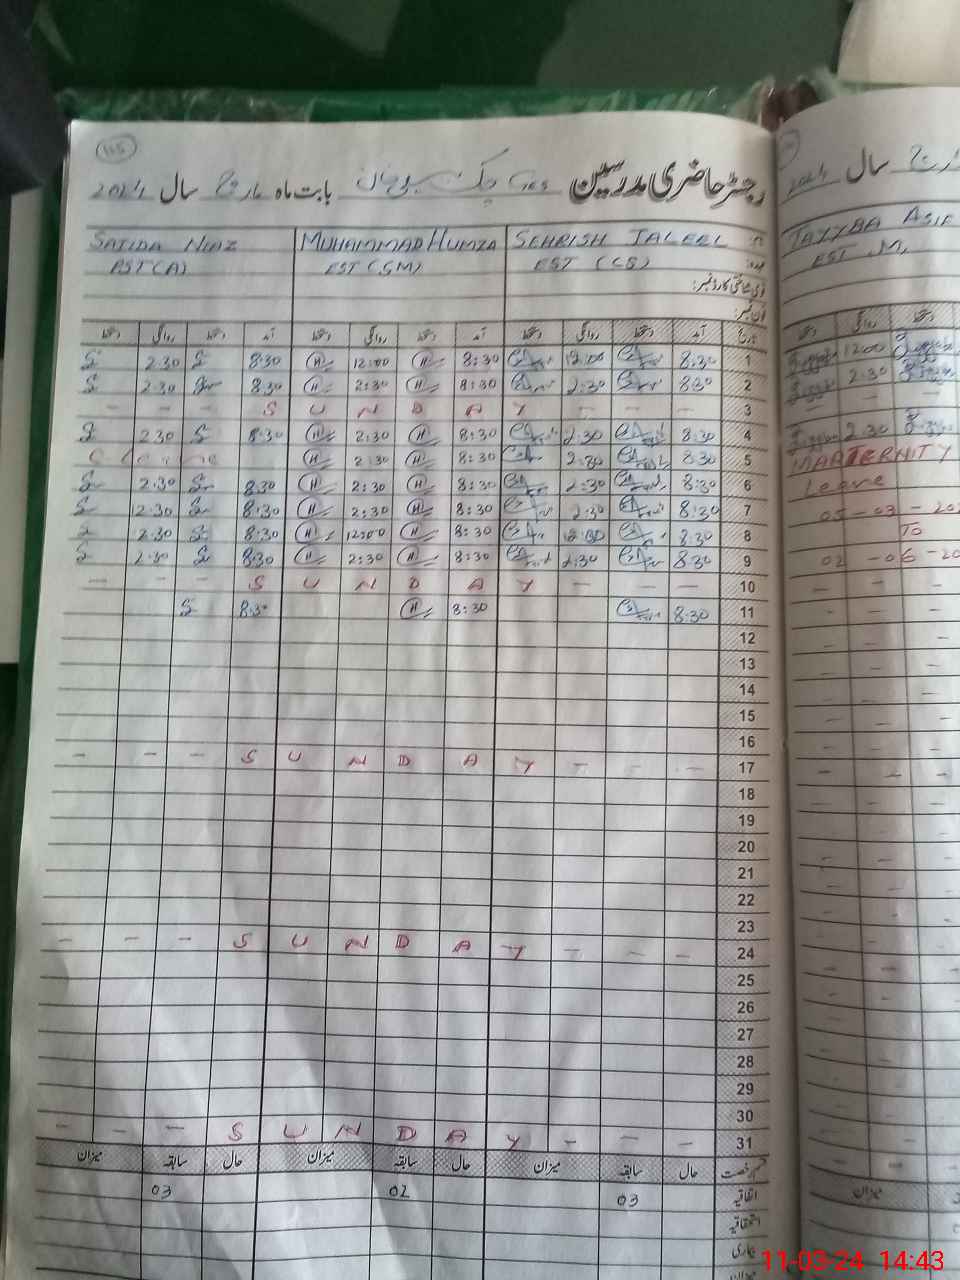 115
رجسٹر حاضری مدرسین GES چک بابت ماہ مارچ سال 2024
SAJIDA NIAZ MUHAMMAD HUMZA SEHRISH JALEEL
PST(A) EST (SM) EST (CS) عہدہ:
قومی شناختی کارڈ نمبر:
فون نمبر:
دستخط روانگی دستخط آمد دستخط روانگی دستخط آمد دستخط روانگی دستخط آمد تاریخ
2.30 8:30 H 12:00 H 8:30 12:00 8:30 1
2.30 8.30 H 2:30 H 8:30 2:30 8:30 2
- - - S U N D A Y - - - 3
2.30 8:30 H 2:30 H 8:30 2:30 8:30 4
H 2:30 H 8:30 2:30 8:30 5
2.30 8:30 H 2:30 H 8:30 2:30 8:30 6
2.30 8:30 H 2:30 H 8:30 2:30 8:30 7
2.30 8:30 H 12:00 H 8:30 12:00 8:30 8
2.30 8:30 H 2:30 H 8:30 2:30 8:30 9
- - - S U N D A Y - - - 10
8:30 H 8:30 8:30 11
12
13
14
15
16
- - - S U N D A Y - - - 17
18
19
20
21
22
23
- - - S U N D A Y - - - 24
25
26
27
28
29
30
- - - S U N D A Y - - - 31
میزان سابقہ حال میزان سابقہ حال میزان سابقہ حال قسم رخصت
03 02 03 اتفاقیہ
استحقاقیہ
بیماری
میزان
2024 سال مارچ
TAYYBA ASIF
EST M,
دستخط روانگی دستخط
12:00
2:30
2:30
MARTERNITY
Leave
05-03-202
TO
02-06-20
میزان
11-03-24 14:43